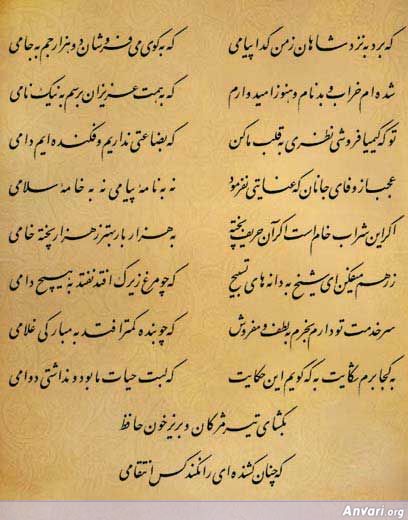 که برد به نزد شاهان ز من گدا پیامی که به کوی می فروشان دو هزار جم به جامی
شده ام خراب و بدنام و هنوز امیدوارم که به همت عزیزان برسم به نیک نامی
تو که کیمیا فروشی نظری به قلب ما کن که بضاعتی نداریم و فکنده ایم دامی
عجب از وفای جانان که عنایتی نفرمود نه به نامه پیامی نه به خامه سلامی
اگر این شراب خام است اگر آن حریف پخته به هزار بار بهتر ز هزار پخته خامی
ز رهم میفکن ای شیخ به دانه های تسبیح که چو مرغ زیرک افتد نفتد به هیچ دامی
سر خدمت تو دارم بخرم به لطف و مفروش که چو بنده کمتر افتد به مبارکی غلامی
به کجا برم شکایت به که گویم این حکایت که لبت حیات ما بود و نداشتی دوامی
بگشای تیر مژگان و بریز خون حافظ
که چنان کشنده ای را نکند کس انتقامی
Anvari.org